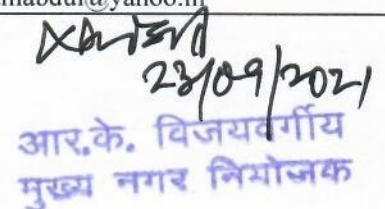 mabdur@yahoo.in
23/09/2021
आर.के. विजयवर्गीय
मुख्य नगर नियोजक